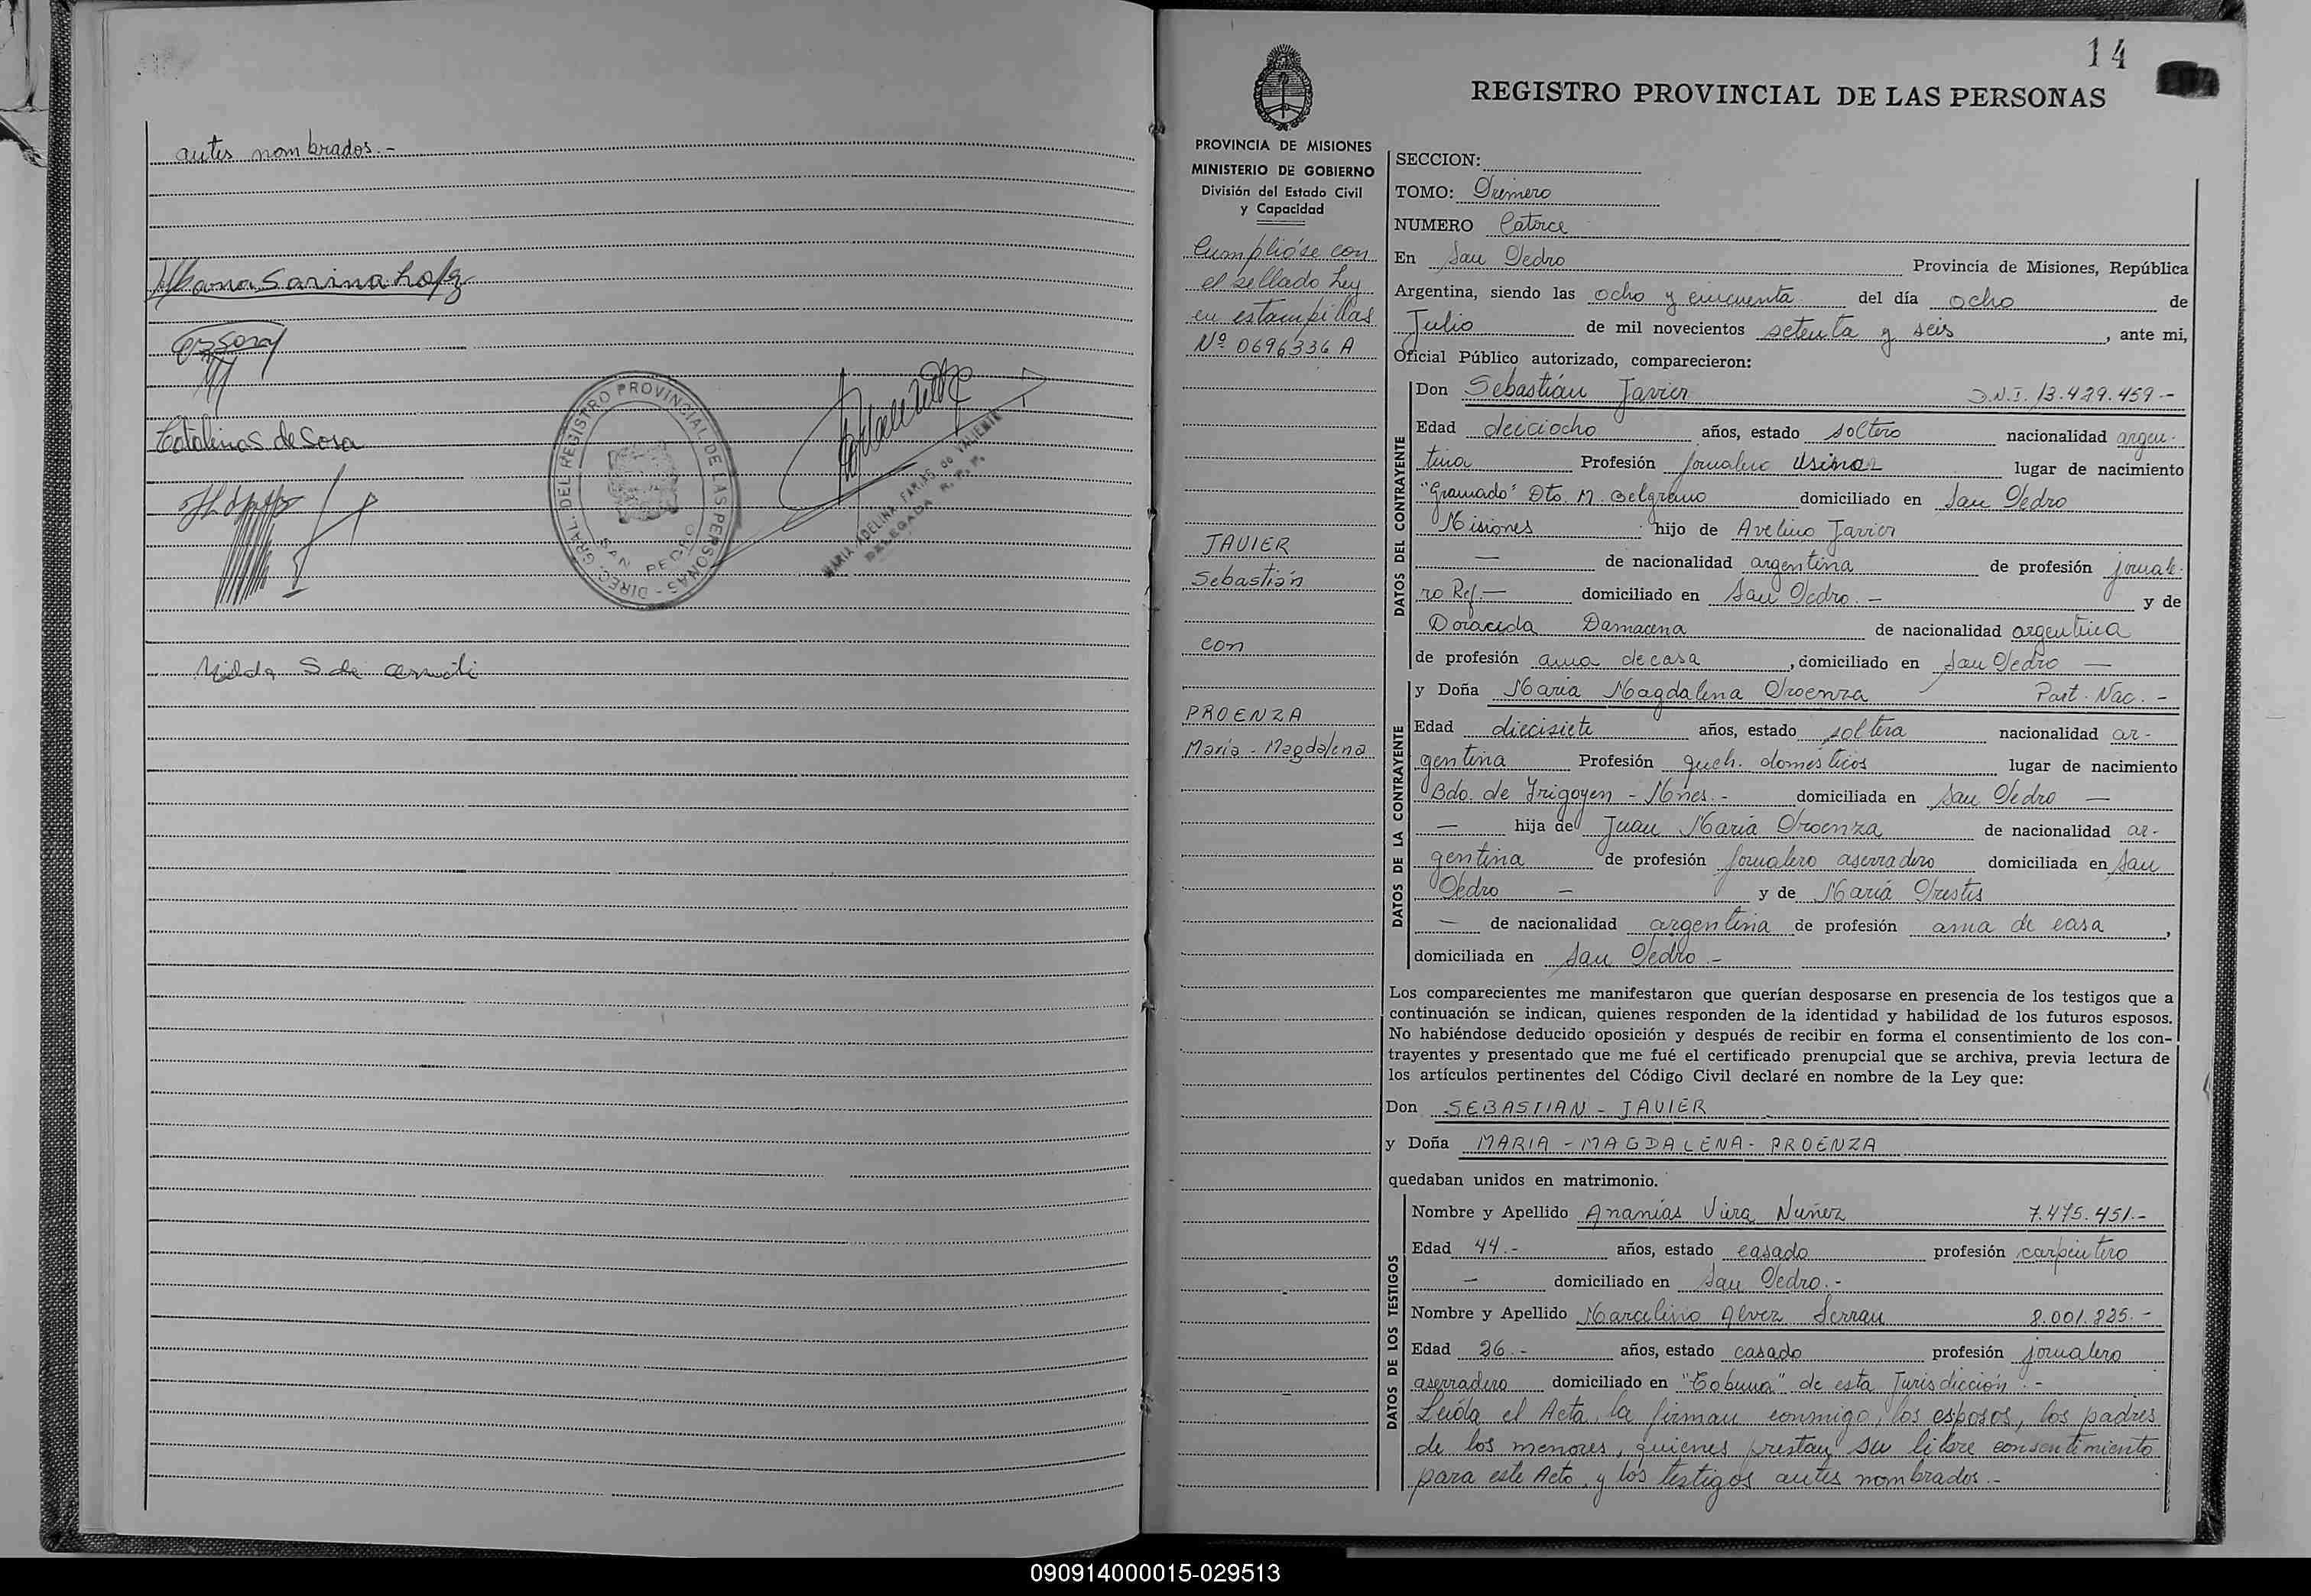 antes nombrados.-
Catalina S. de Sosa
DIREC. GRAL. DEL REGISTRO PROVINCIAL DE LAS PERSONAS -
SAN PEDRO
MARIA ADELINA FARIAS de VALIENTE
DELEGADA R. P. P.
14
REGISTRO PROVINCIAL DE LAS PERSONAS
PROVINCIA DE MISIONES
MINISTERIO DE GOBIERNO
División del Estado Civil
y Capacidad
Cumplióse con
el sellado Ley
en estampillas
Nº 0696336 A
JAVIER
Sebastián
con
PROENZA
María - Magdalena
SECCION:
TOMO: Primero
NUMERO Catorce
En San Pedro Provincia de Misiones, República
Argentina, siendo las ocho y cincuenta del día ocho de
Julio de mil novecientos setenta y seis, ante mi,
Oficial Público autorizado, comparecieron:
DATOS DEL CONTRAYENTE
Don Sebastián Javier D.N.I. 13.489.459.-
Edad dieciocho años, estado soltero nacionalidad argen-
tina Profesión jornalero lugar de nacimiento
"Gramado" Dto. M. Belgrano domiciliado en San Pedro
Misiones hijo de Avelino Javier
— de nacionalidad argentina de profesión jornale-
ro Ref.— domiciliado en San Pedro.- y de
Doracida Damacena de nacionalidad argentina
de profesión ama de casa, domiciliado en San Pedro —
DATOS DE LA CONTRAYENTE
y Doña María Magdalena Proenza Part. Nac. -
Edad diecisiete años, estado soltera nacionalidad ar-
gentina Profesión queh. domésticos lugar de nacimiento
Bdo. de Irigoyen - Mnes.- domiciliada en San Pedro —
— hija de Juan María Proenza de nacionalidad ar-
gentina de profesión jornalero aserradero domiciliada en San
Pedro — y de María Prestes
— de nacionalidad argentina de profesión ama de casa,
domiciliada en San Pedro.-
Los comparecientes me manifestaron que querían desposarse en presencia de los testigos que a
continuación se indican, quienes responden de la identidad y habilidad de los futuros esposos.
No habiéndose deducido oposición y después de recibir en forma el consentimiento de los con-
trayentes y presentado que me fué el certificado prenupcial que se archiva, previa lectura de
los artículos pertinentes del Código Civil declaré en nombre de la Ley que:
Don SEBASTIAN - JAVIER
y Doña MARIA - MAGDALENA - PROENZA
quedaban unidos en matrimonio.
DATOS DE LOS TESTIGOS
Nombre y Apellido Ananías Viera Nuñez 7.475.451.-
Edad 44.- años, estado casado profesión carpintero
— domiciliado en San Pedro.-
Nombre y Apellido Marcelino Alvez Serrau 8.001.835.-
Edad 26.- años, estado casado profesión jornalero
aserradero domiciliado en "Tobuna" de esta Jurisdicción.-
Leída el Acta, la firman conmigo, los esposos, los padres
de los menores, quienes prestan su libre consentimiento
para este Acto, y los testigos antes nombrados.-
090914000015-029513